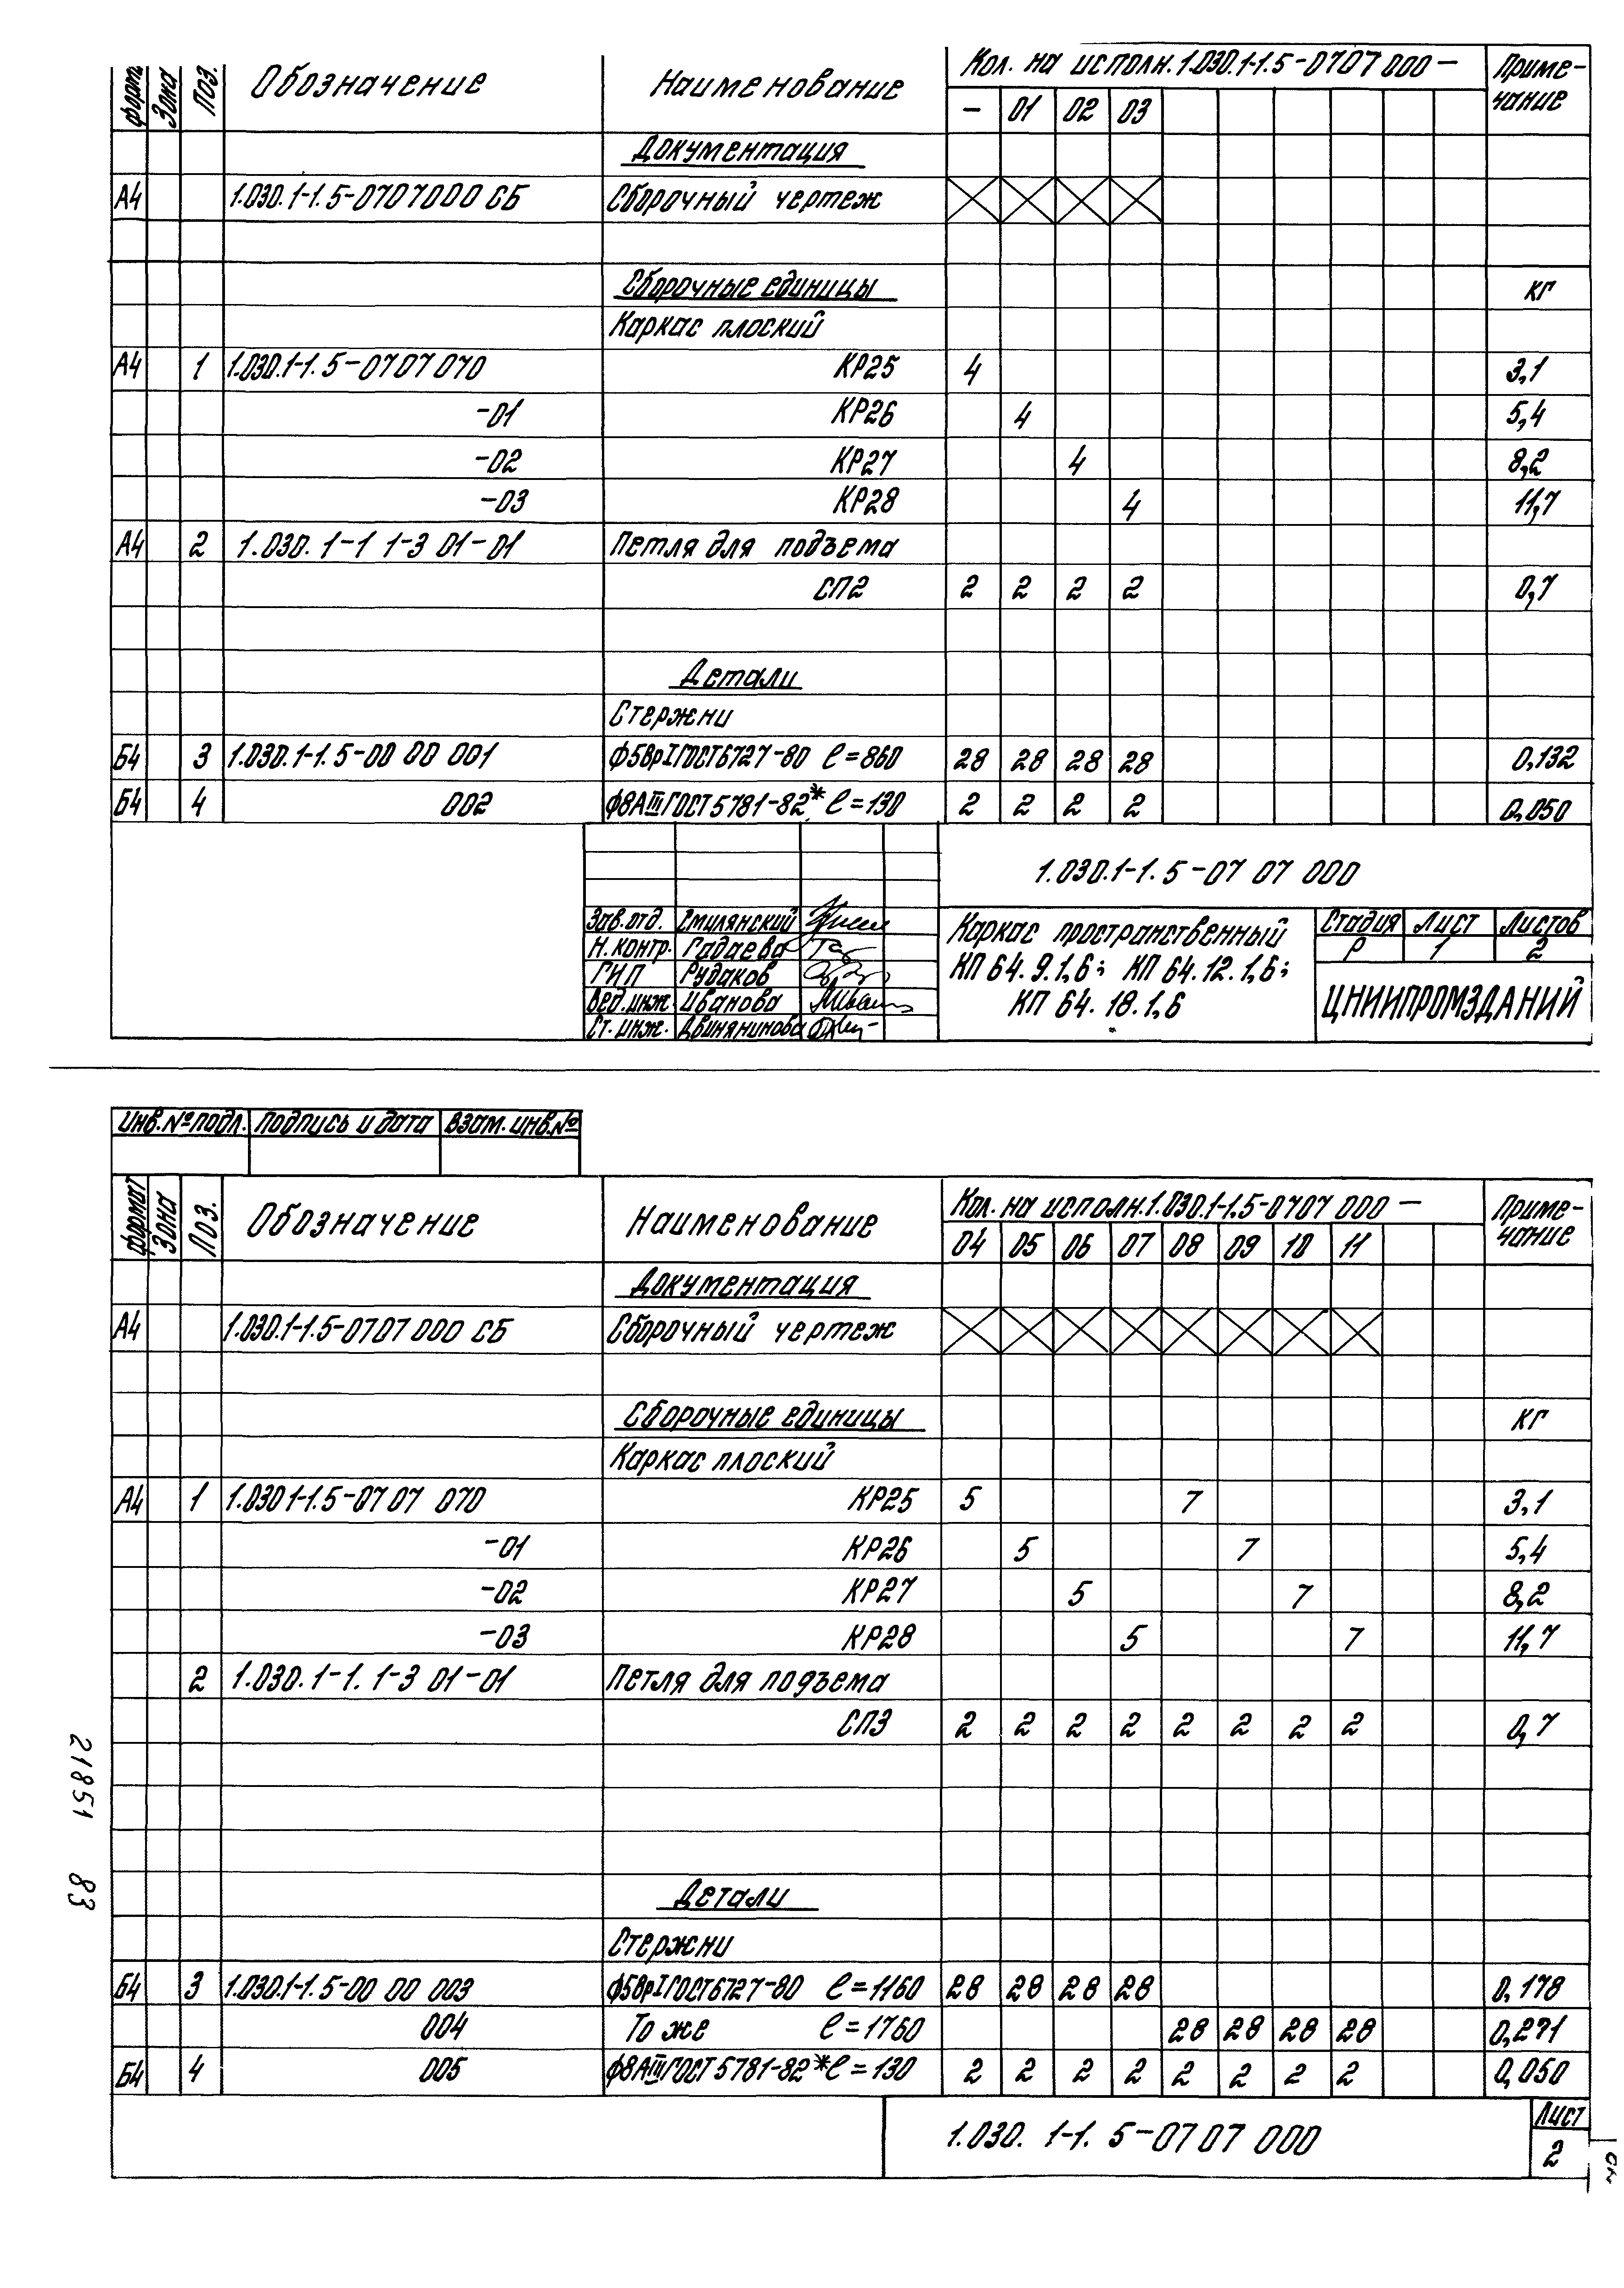 формат Зона Поз. Обозначение Наименование Кол. на исполн. 1.030.1-1.5-0707 000 — Приме-
чание
— 01 02 03
Документация
А4 1.030.1-1.5-0707000 СБ Сборочный чертеж
Сборочные единицы кг
Каркас плоский
А4 1 1.030.1-1.5-0707 070 КР25 4 3,1
-01 КР26 4 5,4
-02 КР27 4 8,2
-03 КР28 4 11,7
А4 2 1.030. 1-1 1-3 01-01 Петля для подъема
СП2 2 2 2 2 0,7
Детали
Стержни
Б4 3 1.030.1-1.5-00 00 001 ф5ВрI ГОСТ6727-80 ℓ=860 28 28 28 28 0,132
Б4 4 002 ф8АIII ГОСТ 5781-82* ℓ=130 2 2 2 2 0,050
1.030.1-1. 5-07 07 000
Зав.отд. Смилянский
Н.контр. Гадаева
ГИП Рудаков
Вед.инж. Иванова
Ст.инж. Двинянинова
Каркас пространственный
КП 64.9.1,6; КП 64.12.1,6;
КП 64.18.1,6
Стадия Лист Листов
Р 1 2
ЦНИИПРОМЗДАНИЙ
Инв.№подл. Подпись и дата Взам.инв.№
формат Зона Поз. Обозначение Наименование Кол. на исполн.1.030.1-1.5-0707 000 — Приме-
чание
04 05 06 07 08 09 10 11
Документация
А4 1.030.1-1.5-0707 000 СБ Сборочный чертеж
Сборочные единицы кг
Каркас плоский
А4 1 1.030 1-1.5-07 07 070 КР25 5 7 3,1
-01 КР26 5 7 5,4
-02 КР27 5 7 8,2
-03 КР28 5 7 11,7
2 1.030. 1-1. 1-3 01-01 Петля для подъема
СП3 2 2 2 2 2 2 2 2 0,7
Детали
Стержни
Б4 3 1.030.1-1.5-00 00 003 ф5ВрI ГОСТ6727-80 ℓ=1160 28 28 28 28 0,178
004 То же ℓ=1760 28 28 28 28 0,271
Б4 4 005 ф8АIII ГОСТ 5781-82* ℓ=130 2 2 2 2 2 2 2 2 0,050
1.030. 1-1. 5-0707 000
Лист
2
21851 83